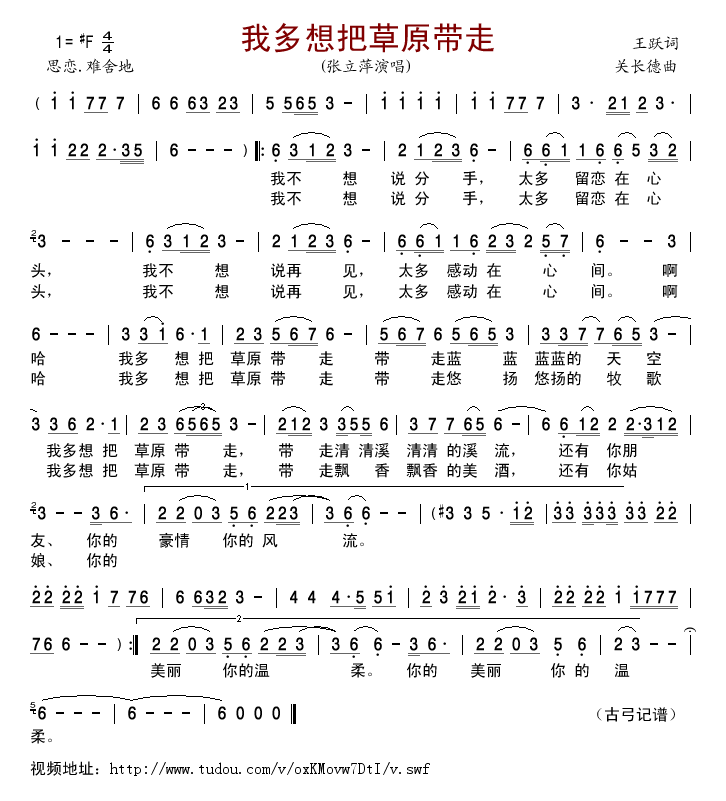 我多想把草原带走
1= #F 4/4
王跃词
思恋.难舍地
(张立萍演唱)
关长德曲
( i i 77 7 | 6 6 63 23 | 5 565 3 - | i i i i | i i 77 7 | 3 · 21 2 3 · |
i i 22 2 · 35 | 6 - - - ) ‖: 6 312 3 - | 2 123 6 - | 6 61 16 6 5 32 |
我不 想 说分 手, 太多 留恋在 心
我不 想 说分 手, 太多 留恋在 心
2 3 - - - | 6 312 3 - | 2 123 6 - | 6 61 16 232 57 | 6 - - 3 |
头, 我不 想 说再 见, 太多 感动在 心 间。 啊
头, 我不 想 说再 见, 太多 感动在 心 间。 啊
6 - - - | 3 31 6 · 1 | 23 567 6 - | 567 6 565 3 | 33 77 65 3 |
哈 我多 想把 草原带 走 带 走蓝 蓝 蓝蓝的 天 空
哈 我多 想把 草原带 走 带 走悠 扬 悠扬的 牧 歌
3 36 2 · 1 | 23 6565 3 - | 212 355 6 | 37 7 65 6 - | 6 612 2 2·312 |
我多想把 草原带 走, 带 走清清溪 清清的溪 流, 还有 你朋
我多想把 草原带 走, 带 走飘 香 飘香的美 酒, 还有 你姑
2 3 - - 36 · | 2 203 56 223 | 3 6 6 - - | (#3 3 5 · i2 | 33 333 33 22 |
1
友、 你的 豪情 你的风 流。
娘、 你的
22 22 i 7 76 | 6 632 3 - | 4 4 4·5 5i | 2 3 2i 2 · 3 | 22 22 i i777 |
76 6 - - ) :‖ 2 203 56 223 | 36 6 - 36 · | 2 203 5 6 | 23 - - |
2
美丽 你的温 柔。 你的 美丽 你 的 温
5 6 - - - | 6 - - - | 6 0 0 0 ‖
(古弓记谱)
柔。
视频地址：http://www.tudou.com/v/oxKMovw7DtI/v.swf